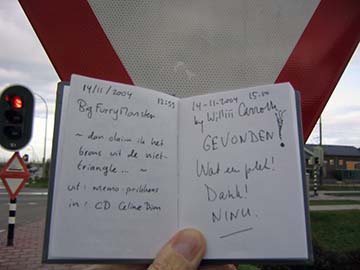 14/11/2004 12:55
Big Furry Monster
~ dan claim ik het
brons uit de niet-
triangle... ~
uit: memo-probleem
in: CD Celine Dion
14-11-2004 15.00
by Willii
GEVONDEN!
Wat een plek!
Dank!
NINU.